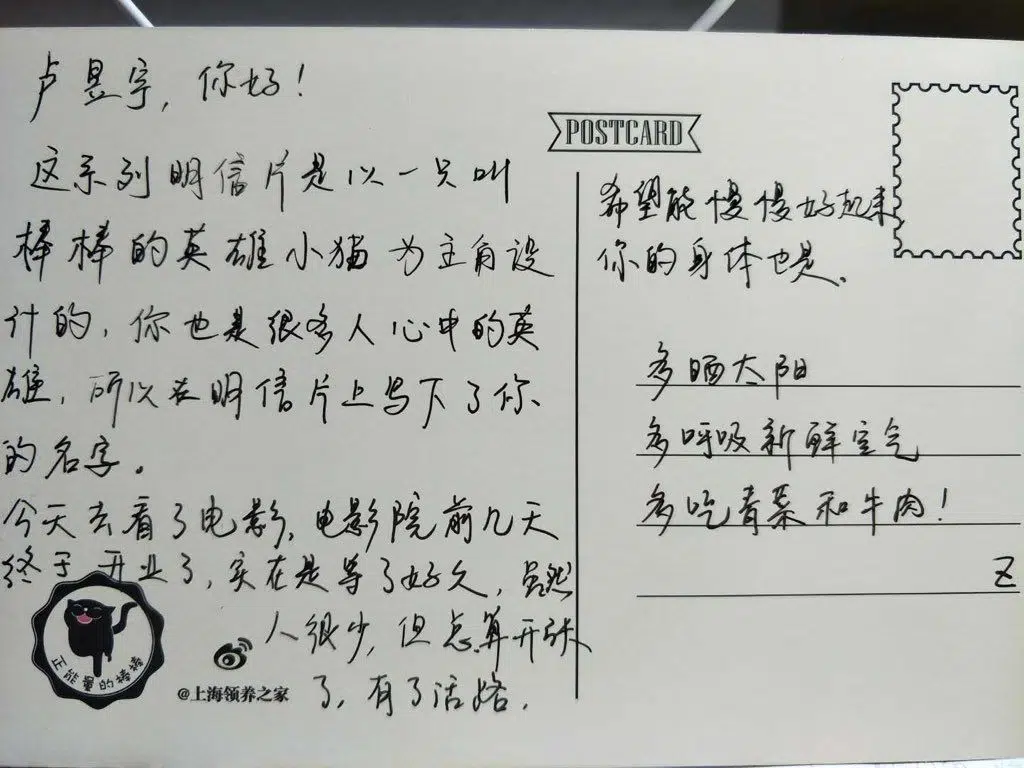 卢昱宇，你好！
这系列明信片是以一只叫
棒棒的英雄小猫为主角设
计的，你也是很多人心中的英
雄，所以在明信片上写下了你
的名字。
今天去看了电影，电影院前几天
终于开业了，实在是等了好久，虽然
人很少，但总算开张
了，有了活络．
正能量的棒棒
@上海领养之家
POSTCARD
希望能慢慢好起来
你的身体也是．
多晒太阳
多呼吸新鲜空气
多吃青菜和牛肉！
Z